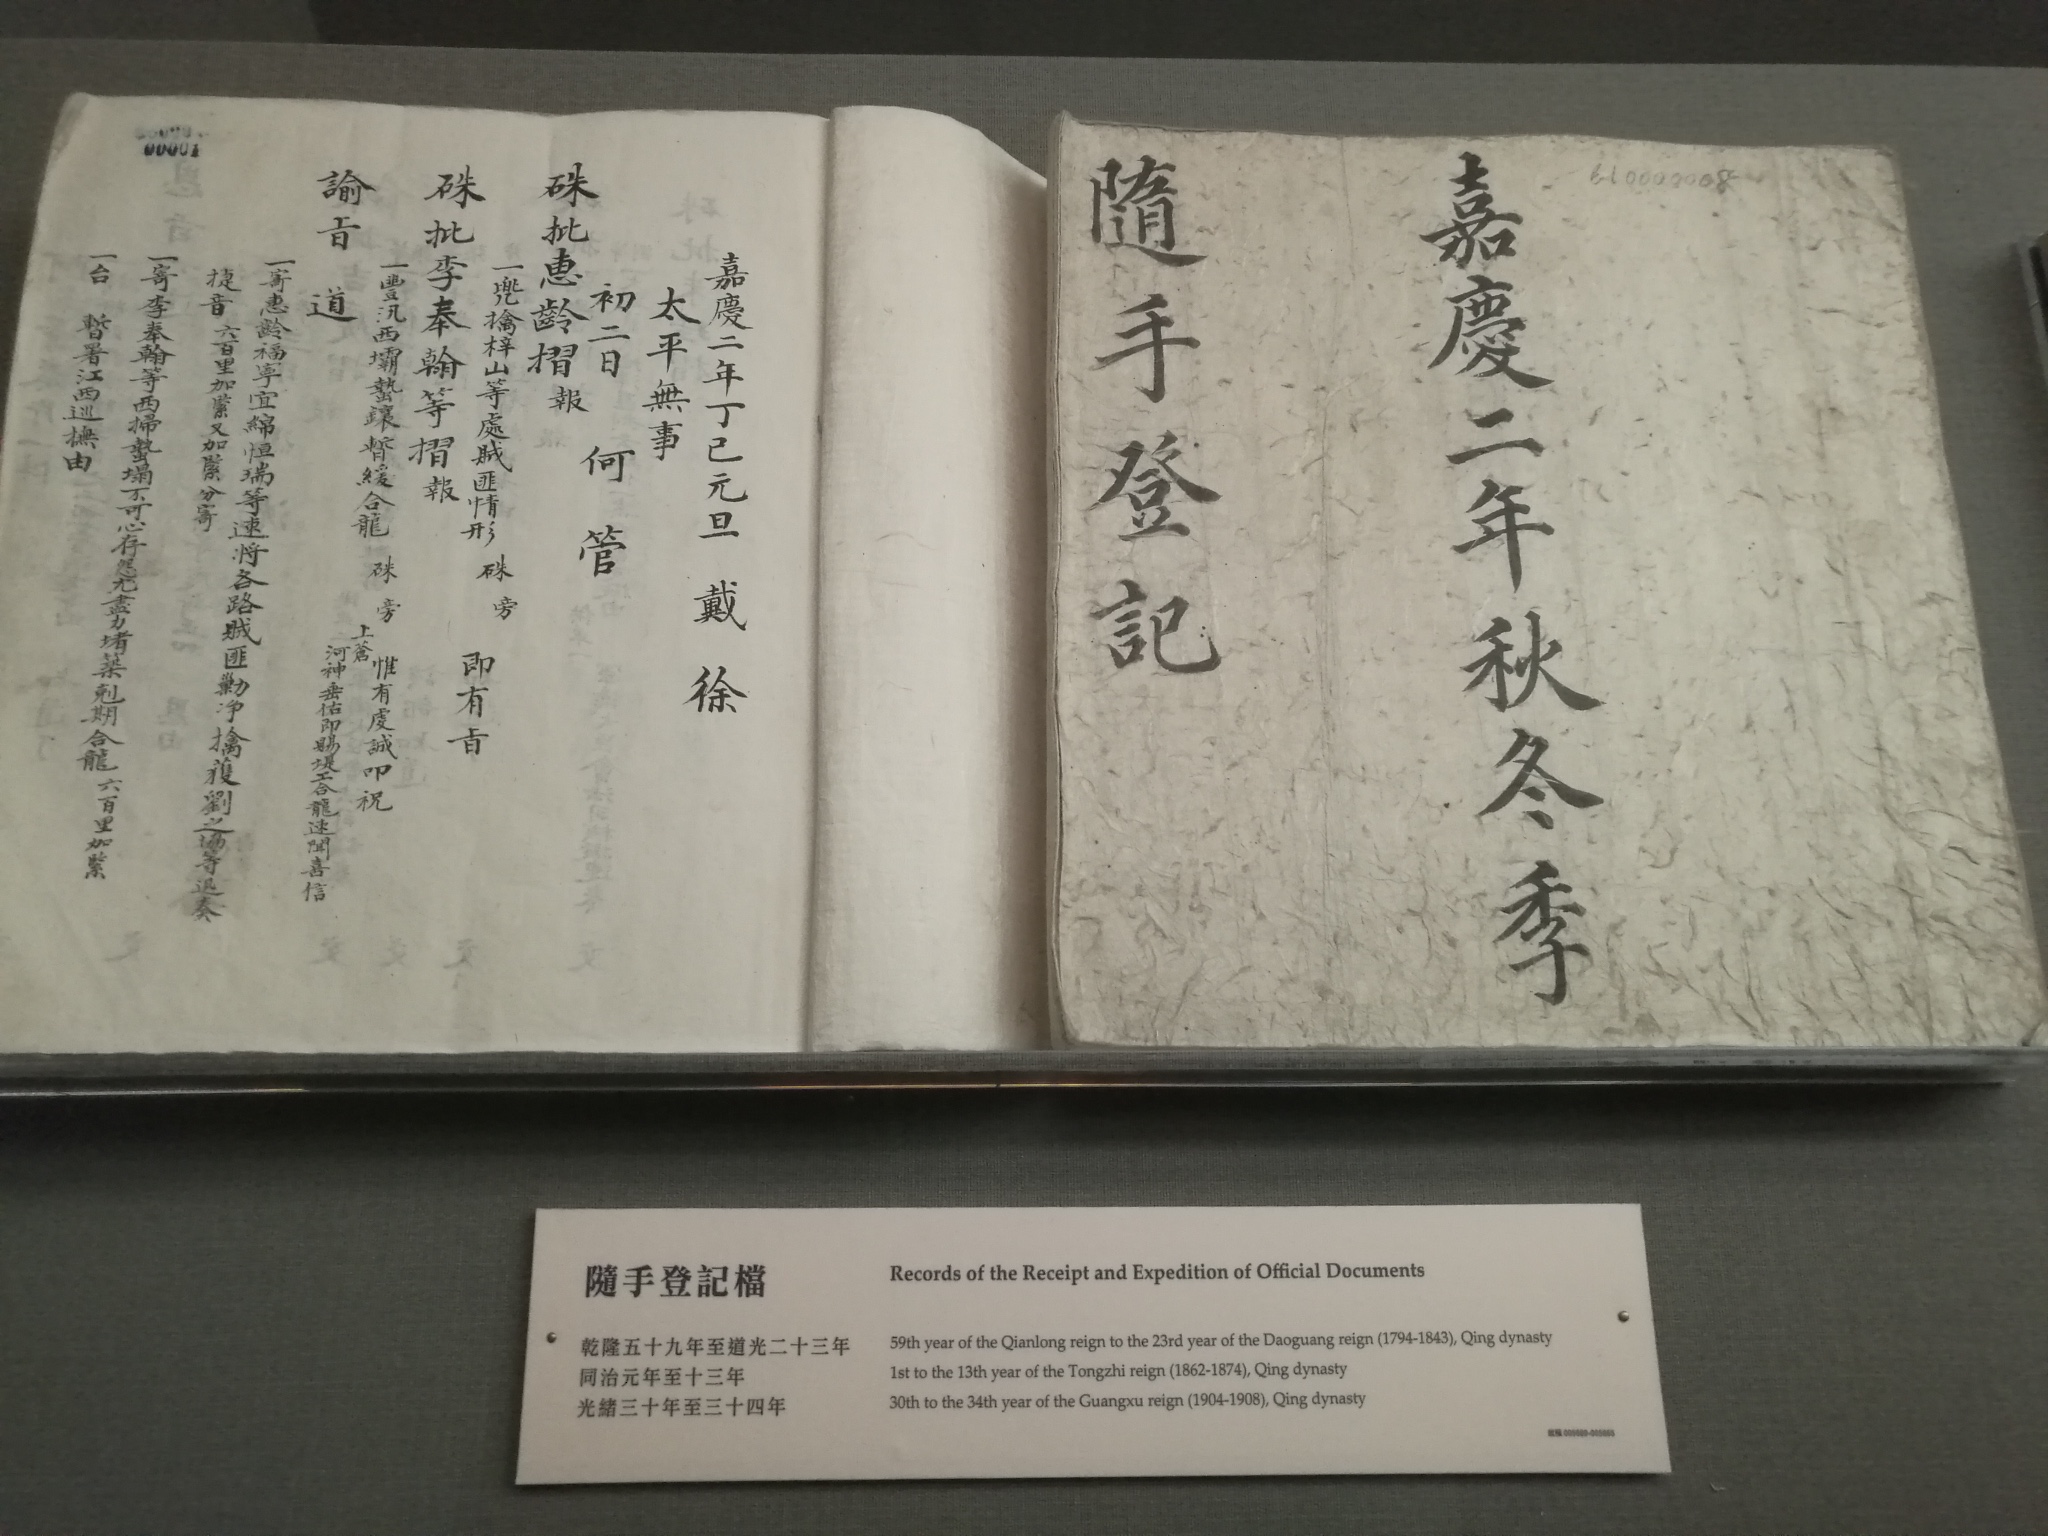 嘉慶二年秋冬季
隨手登記
嘉慶二年丁巳元旦 戴 徐
太平無事
初二日 何 管
硃批惠齡摺報
一兜擒梓山等處賊匪情形 硃旁 即有旨
硃批李奉翰等摺報
一豐汛西壩蟄鑲暫緩合龍 硃旁 惟有虔誠叩祝
上蒼
河神垂佑即賜堤工合龍速聞喜信
諭旨 道
一寄惠齡福寧宜綿恒瑞等速將各路賊匪勦净擒獲劉之協等迅奏
捷音 六百里加紧又加紧分寄
一寄李奉翰等西掃蟄塌不可心存怨尤盡力堵築剋期合龍 六百里加紧
一台 暫署江西巡撫由
00001
隨手登記檔
乾隆五十九年至道光二十三年
同治元年至十三年
光緒三十年至三十四年
Records of the Receipt and Expedition of Official Documents
59th year of the Qianlong reign to the 23rd year of the Daoguang reign (1794-1843), Qing dynasty
1st to the 13th year of the Tongzhi reign (1862-1874), Qing dynasty
30th to the 34th year of the Guangxu reign (1904-1908), Qing dynasty